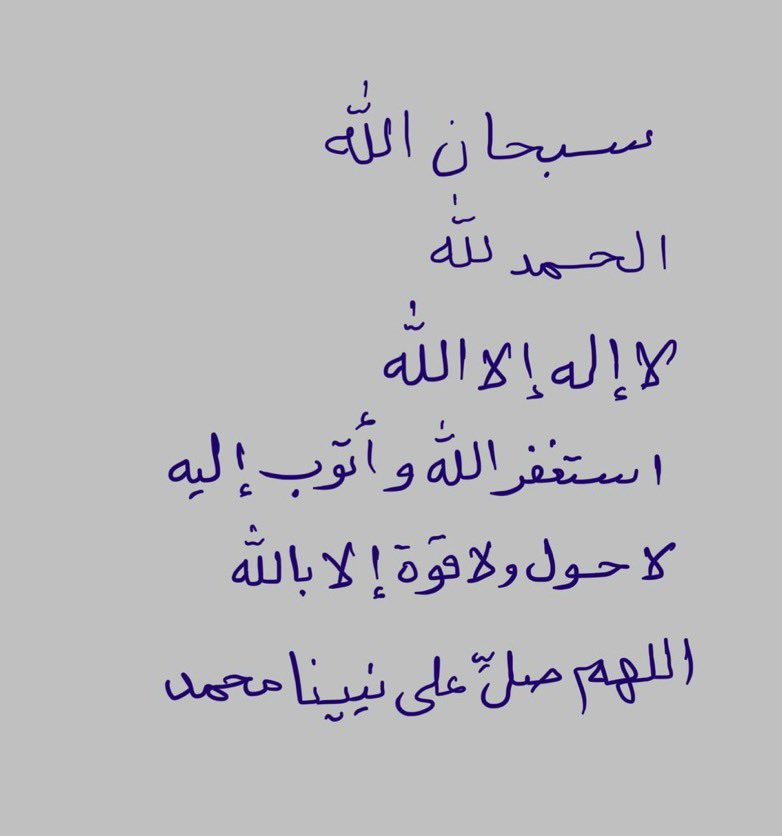 سبحان الله
الحمد لله
لا إله إلا الله
استغفر الله و أتوب إليه
لا حول ولا قوة إلا بالله
اللهم صلِّ على نبينا محمد